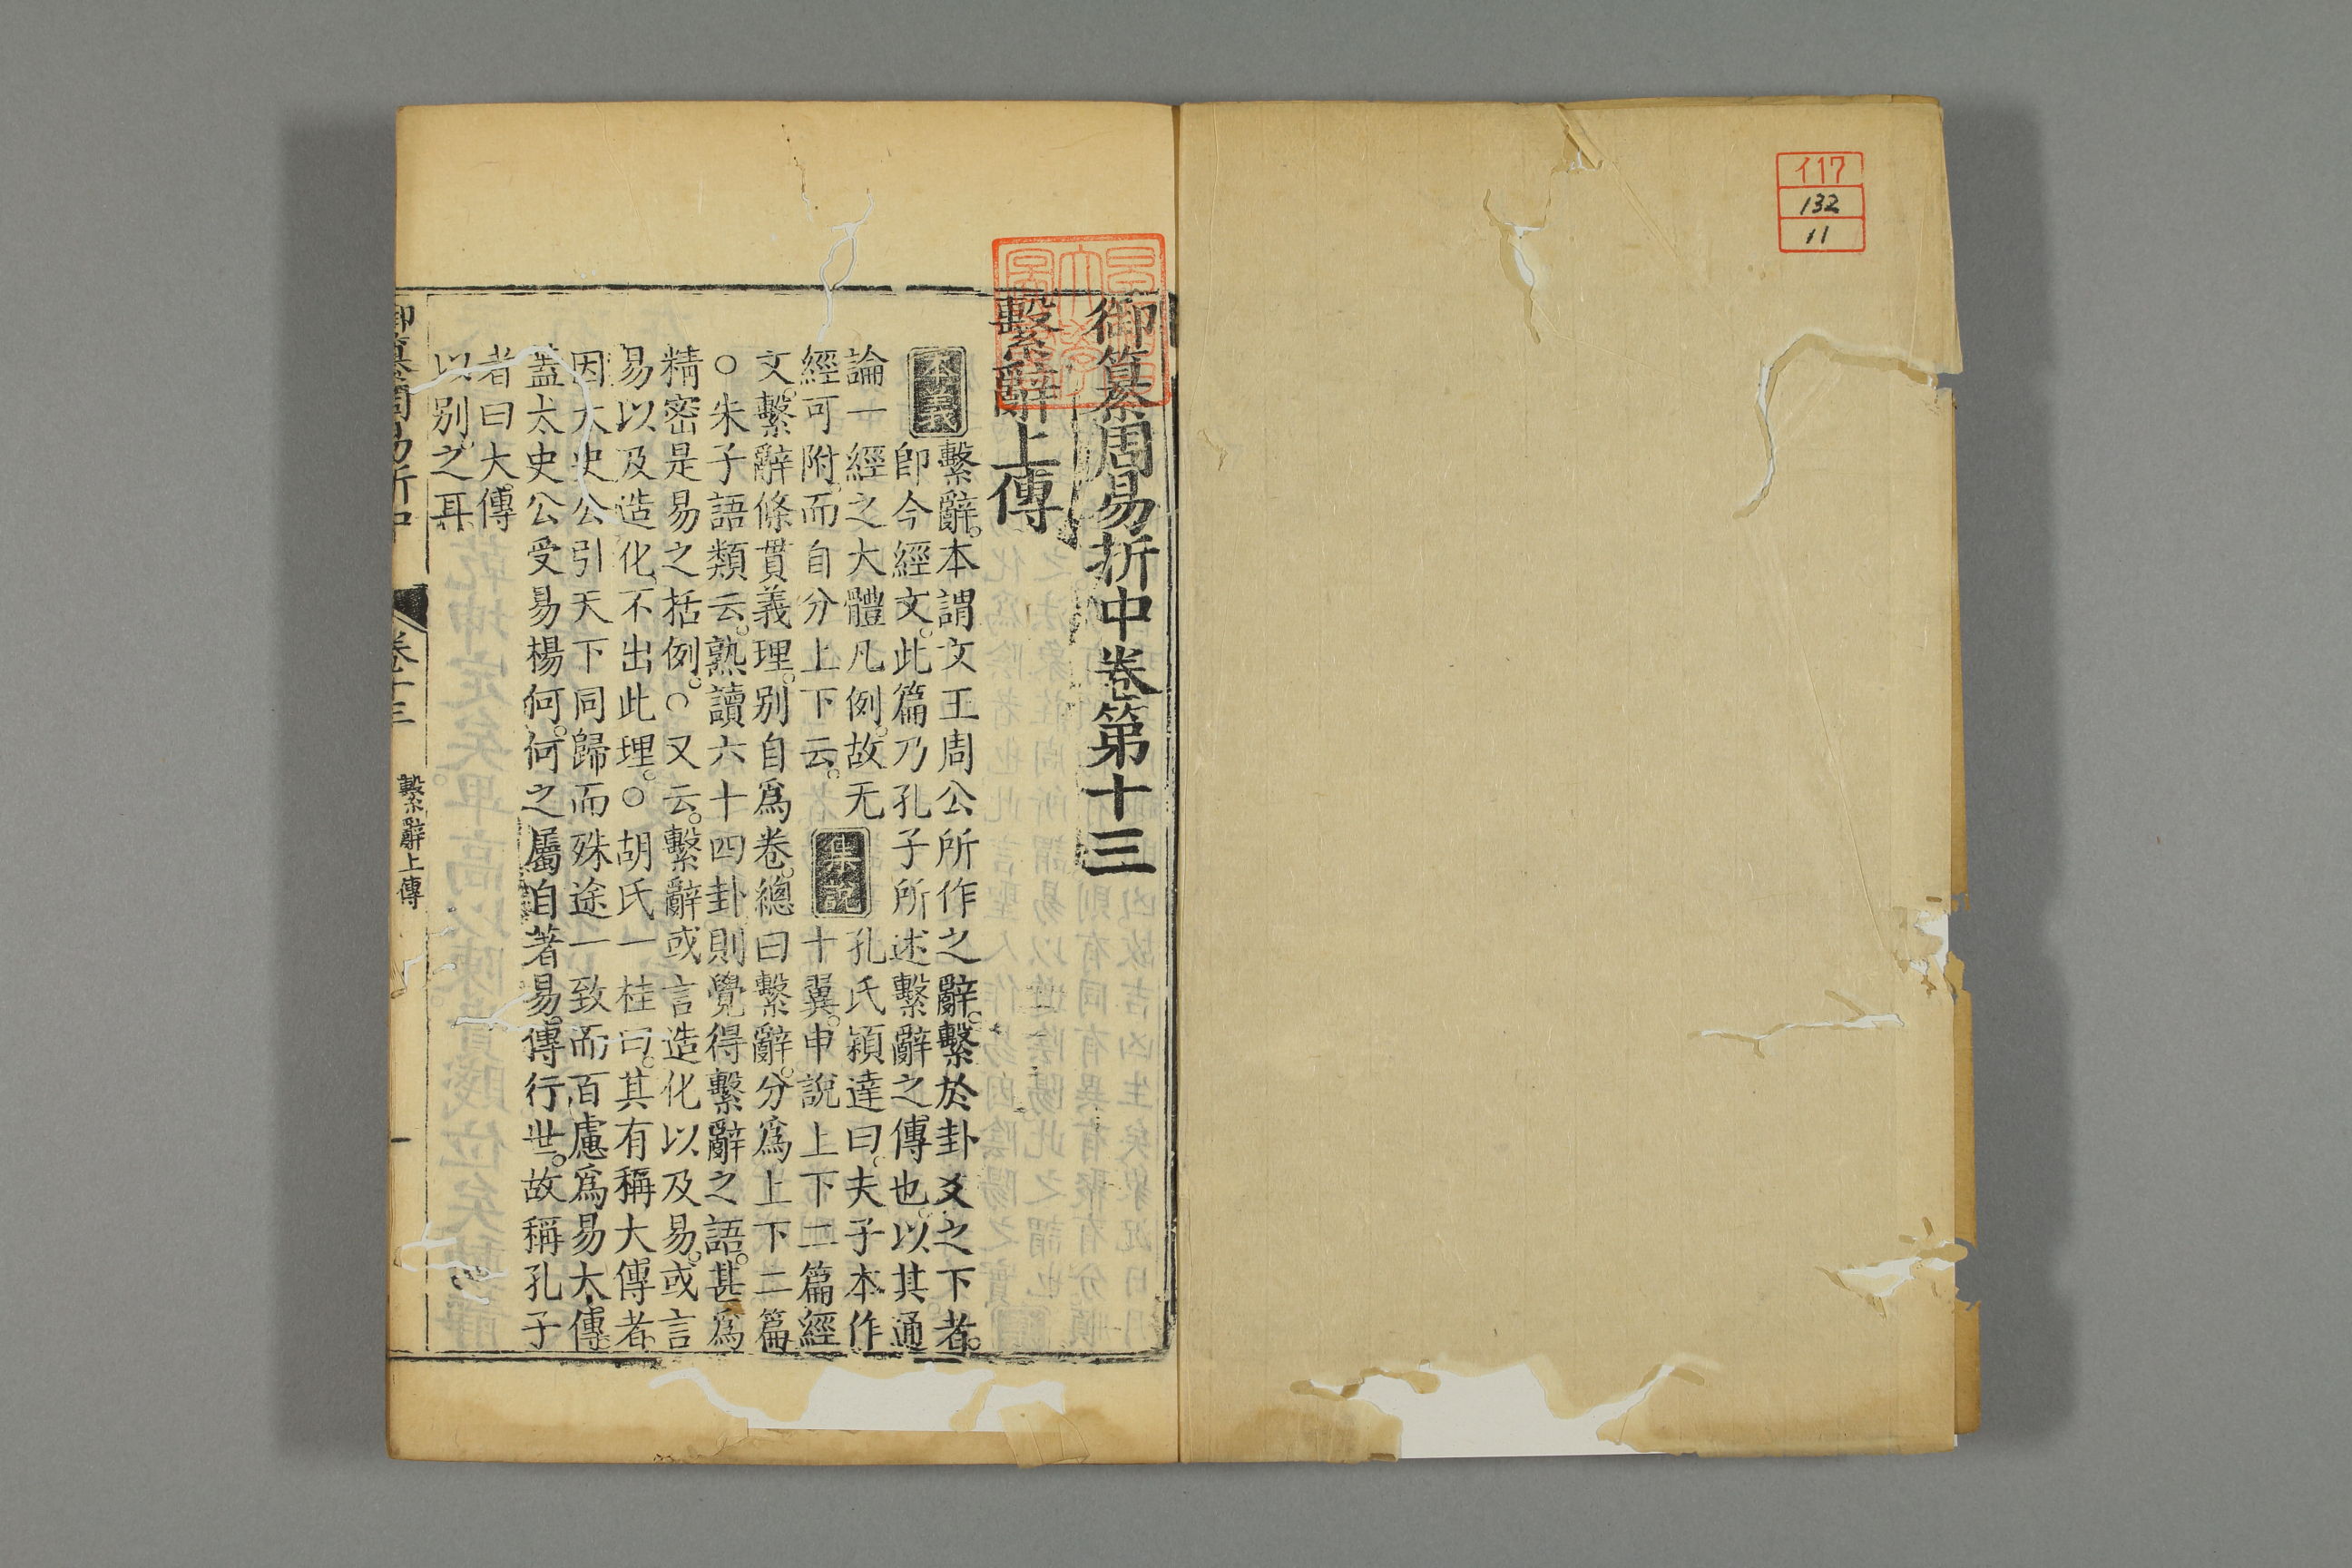 イ17
132
11
御纂周易折中卷第十三
繫辭上傳
本義
繫辭。本謂文王周公所作之辭。繫於卦爻之下者。
卽今經文。此篇乃孔子所述繫辭之傳也。以其通
論一經之大體凡例。故无
經可附。而自分上下云。
集說
孔氏穎達曰。夫子本作
十翼。申說上下二篇經
文。繫辭條貫義理。別自爲卷。總曰繫辭。分爲上下二篇
○朱子語類云。熟讀六十四卦則覺得繫辭之語。甚爲
精密是易之括例。○又云。繫辭或言造化以及易。或言
易以及造化。不出此理。○胡氏一桂曰。其有稱大傳者。
因太史公引天下同歸而殊途一致而百慮爲易大傳。
蓋太史公受易楊何。何之屬自著易。傳行世。故稱孔子
者曰大傳
以別之耳
御纂周易折中
卷十三
繫辭上傳
一